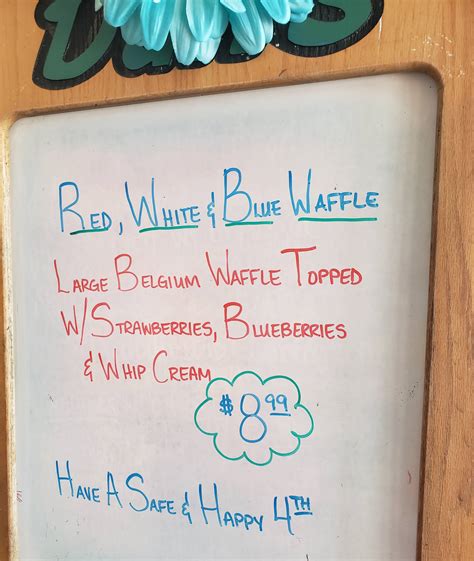 Red, White & Blue Waffle
Large Belgium Waffle Topped
W/Strawberries, Blueberries
& Whip Cream
$8.99
Have A Safe & Happy 4th